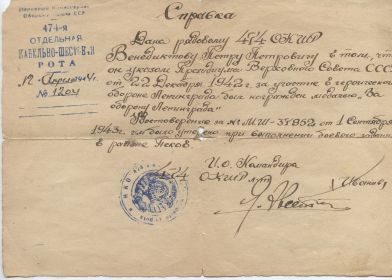 Справка
Народный Комиссариат
Обороны Союза ССР
474-я
ОТДЕЛЬНАЯ
КАБЕЛЬНО-ШЕСТОВАЯ
РОТА
№ 1204
Дана рядовому 474 ОКШР
Венедиктову Петру Петровичу в том, что
он указом Президиума Верховного Совета СССР
от 22 Декабря 1942 г за участие в героической
обороне Ленинграда был награжден медалью „За
оборону Ленинграда"
Удостоверение за № МШ-38952 от 1 Сентября
1943 г им было утеряно при выполнении боевого задания
в районе Псков.
И.О. Командира
474 ОКШР
Иванов